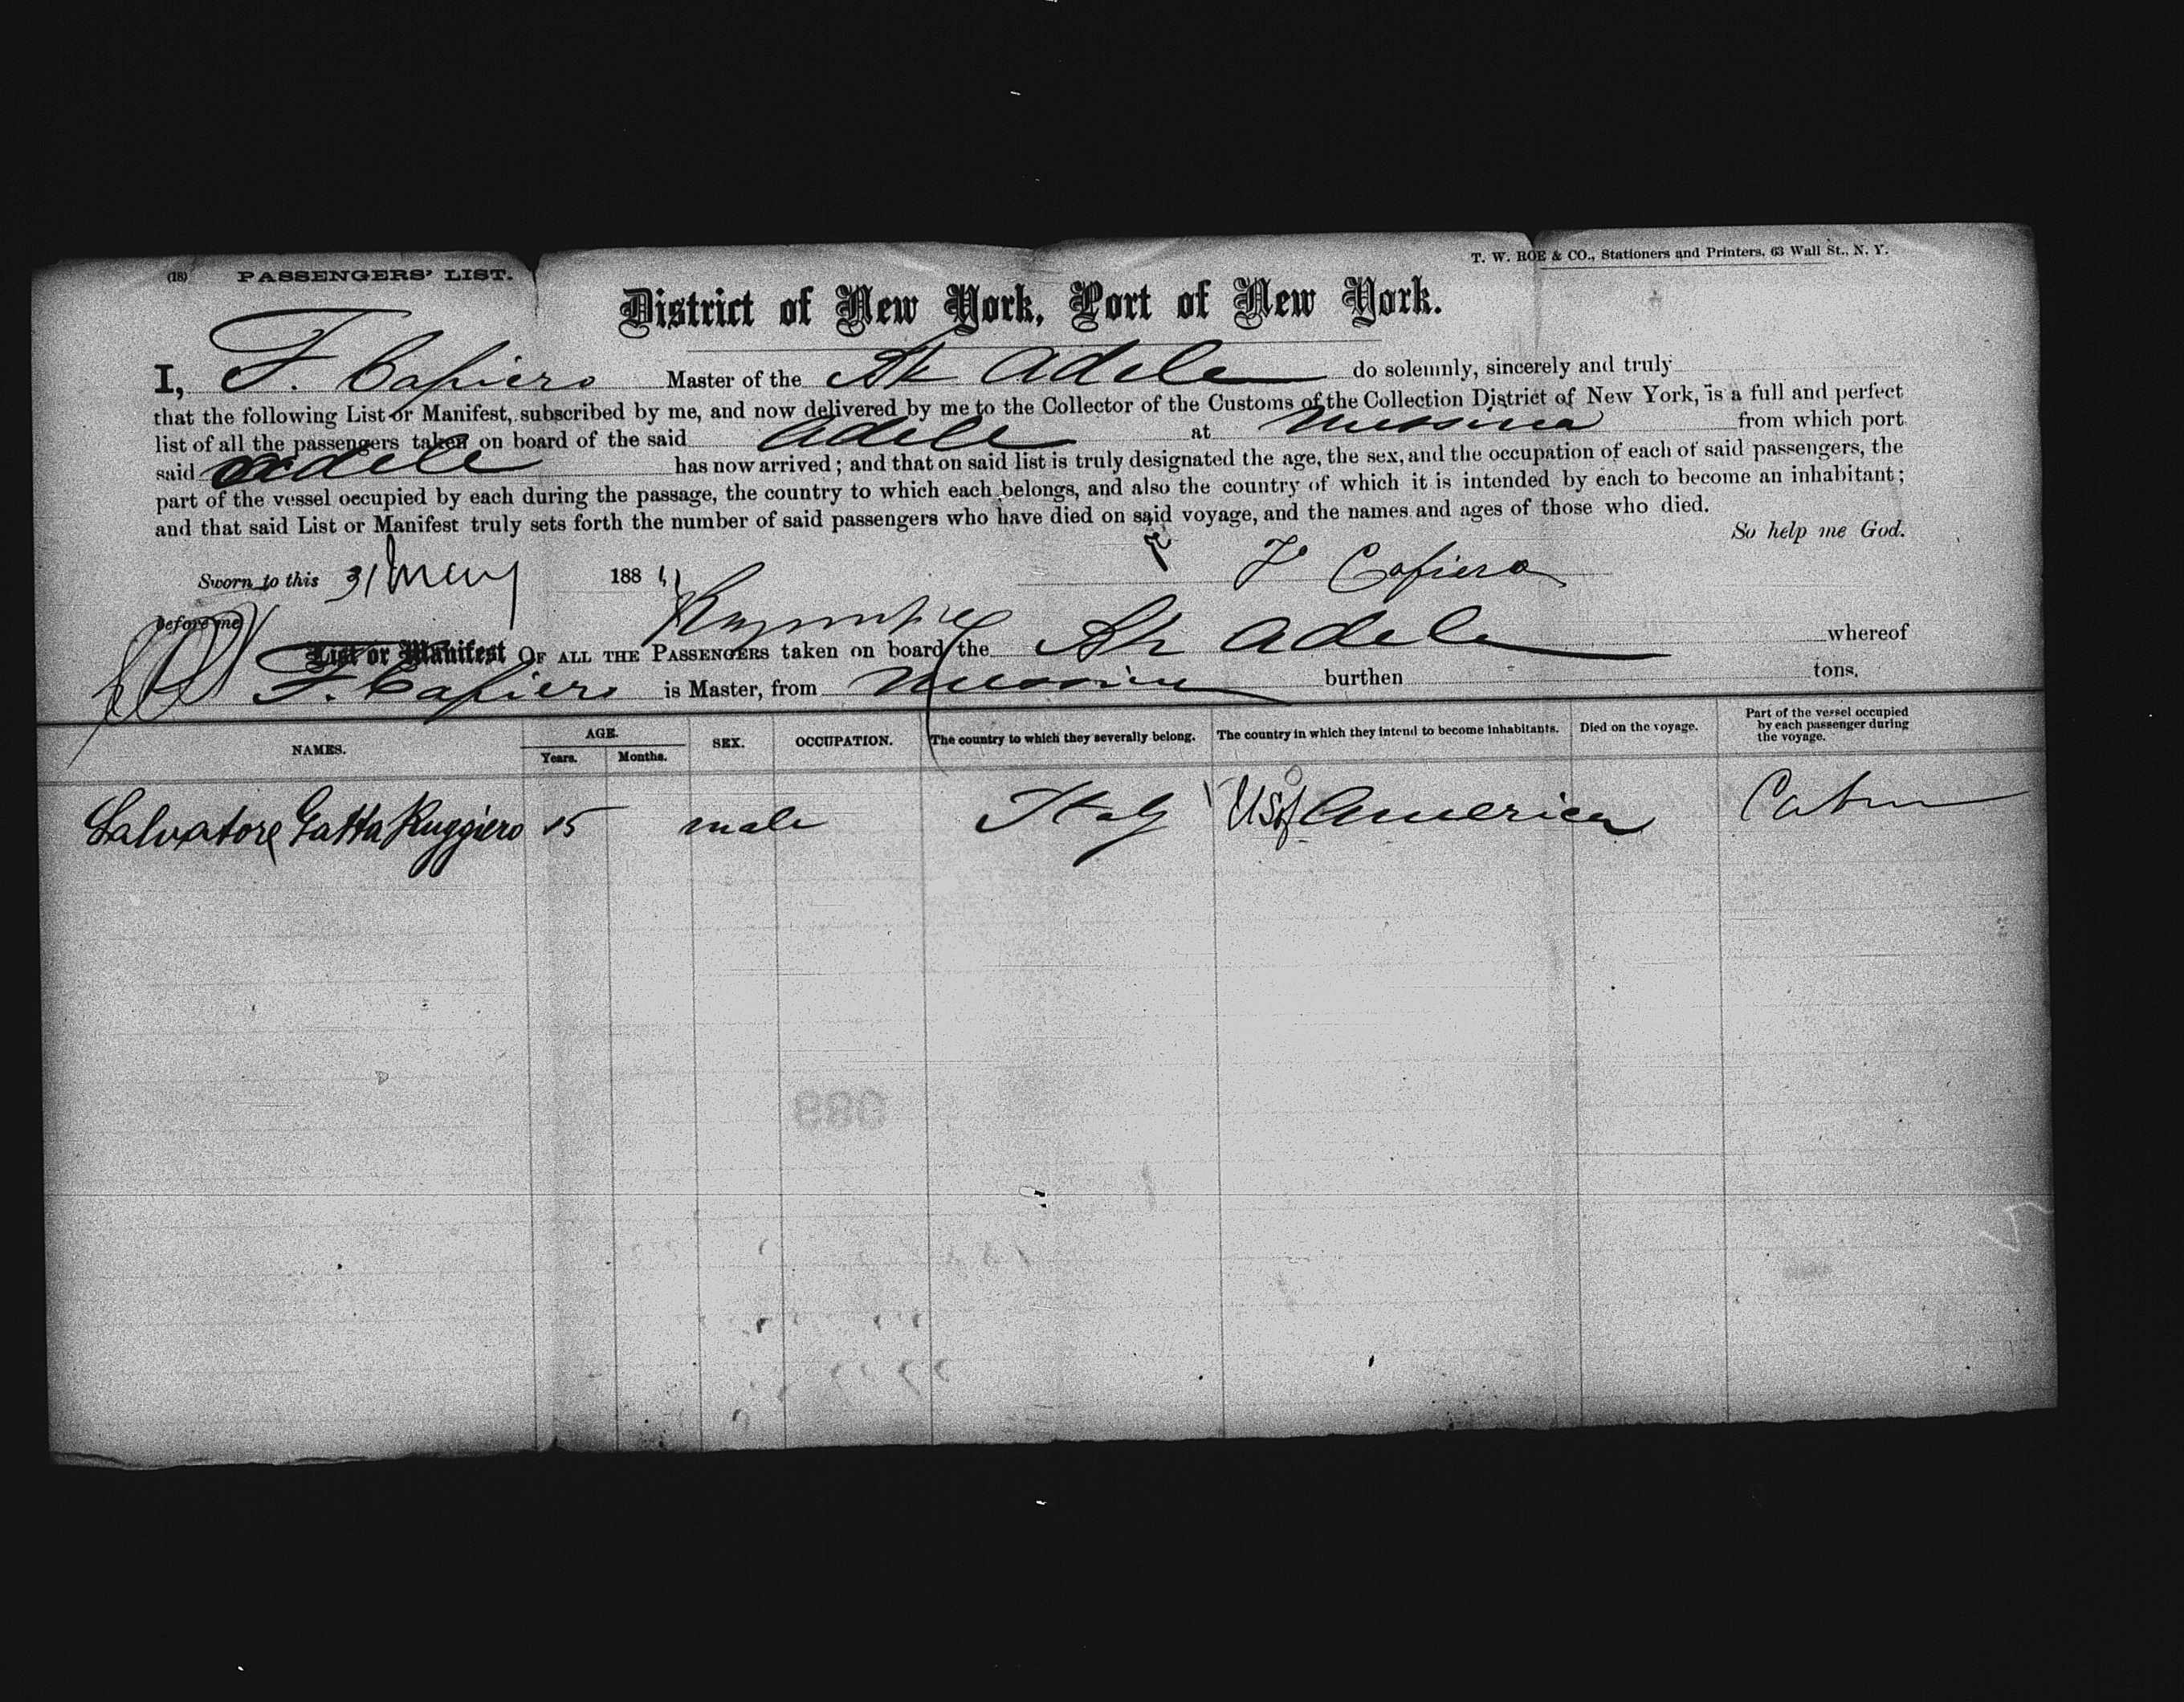 (18) PASSENGERS' LIST.
T. W. ROE & CO., Stationers and Printers, 63 Wall St., N. Y.
District of New York, Port of New York.
I, F. Cafiero Master of the Bk Adele do solemnly, sincerely and truly
that the following List or Manifest, subscribed by me, and now delivered by me to the Collector of the Customs of the Collection District of New York, is a full and perfect
list of all the passengers taken on board of the said Adele at Messina from which port
said Adele has now arrived; and that on said list is truly designated the age, the sex, and the occupation of each of said passengers, the
part of the vessel occupied by each during the passage, the country to which each belongs, and also the country of which it is intended by each to become an inhabitant;
and that said List or Manifest truly sets forth the number of said passengers who have died on said voyage, and the names and ages of those who died.
So help me God.
Sworn to this 31 May 188 F Cafiero
before me
List or Manifest OF ALL THE PASSENGERS taken on board the Bk Adele whereof
F. Cafiero is Master, from Messina burthen tons.
NAMES. AGE. Years. Months. SEX. OCCUPATION. The country to which they severally belong. The country in which they intend to become inhabitants. Died on the voyage. Part of the vessel occupied by each passenger during the voyage.
Salvatore Gatta Ruggiero male Italy US of America Cabin